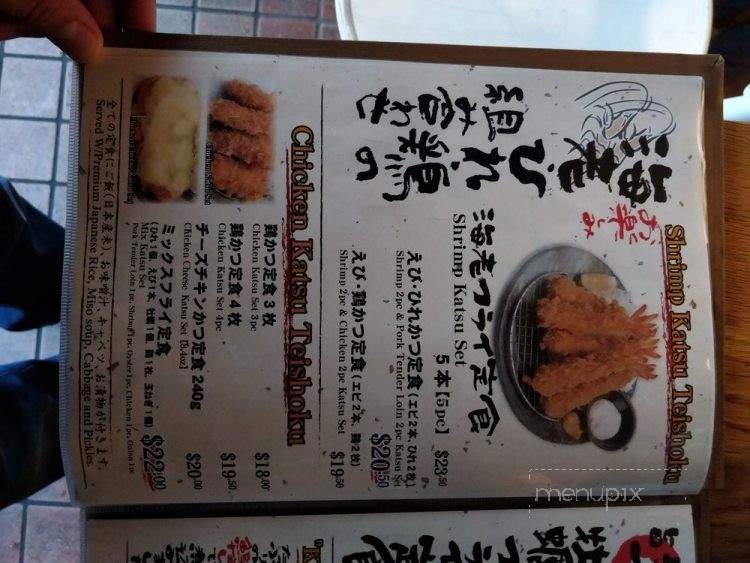 Shrimp Katsu Teishoku
お楽しみ
海老
ひれ鶏の
組み合わせ
海老フライ定食
Shrimp Katsu Set
5本【5pc】 $23.50
えび・ひれかつ定食(エビ2本、ひれ2枚)
Shrimp 2pc & Pork Tender Loin 2pc Katsu Set $20.50
えび・鶏かつ定食(エビ2本、鶏2枚)
Shrimp 2pc & Chicken 2pc Katsu Set $19.50
Chicken Katsu Teishoku
鶏かつ定食 3枚
Chicken Katsu Set 3pc $18.00
鶏かつ定食 4枚
Chicken Katsu Set 4pc $19.50
チーズチキンかつ定食 240g
Chicken Cheese Katsu Set【8.4oz】 $20.00
ミックスフライ定食
(ひれ1個、えび1本、牡蠣1個、鶏1枚、玉ねぎ1個)
Mix Katsu Set $22.00
Pork Tender Loin 1pc, Shrimp 1pc, Oyster 1pc, Chicken 1pc, Onion 1pc
全ての定食にご飯(日本産米)、お味噌汁、キャベツ、お漬物が付きます。
Served W/Premium Japanese Rice, Miso soup, Cabbage and Pickles.
牡蠣フライ定食
menupix